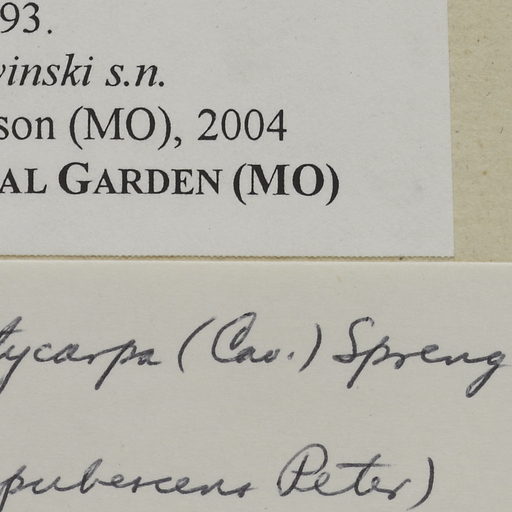 93.
vinski s.n.
son (MO), 2004
AL GARDEN (MO)
tycarpa (Cav.) Spreng
pubescens Peter)